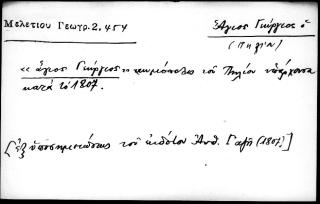 Μελετίου Γεωγρ. 2, 454
Ἅγιος Γεώργιος ὁ
(Πηλίου)
«ἅγιος Γεώργιος» κωμόπολις τοῦ Πηλίου ὑπάρχουσα
κατὰ τὸ 1807.
[ἐξ ὑποσημειώσεως τοῦ ἐκδότου Ἀνθ. Γαζῆ (1807)]